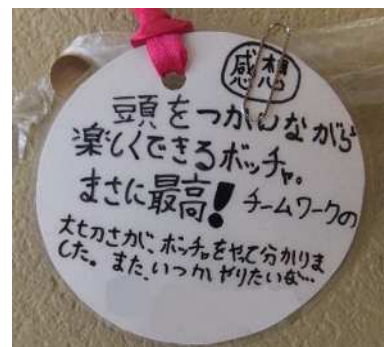 感想
頭をつかいながら
楽しくできるボッチャ。
まさに最高！チームワークの
大切さが、ボッチャをやって分かりま
した。また、いつか、やりたいな…